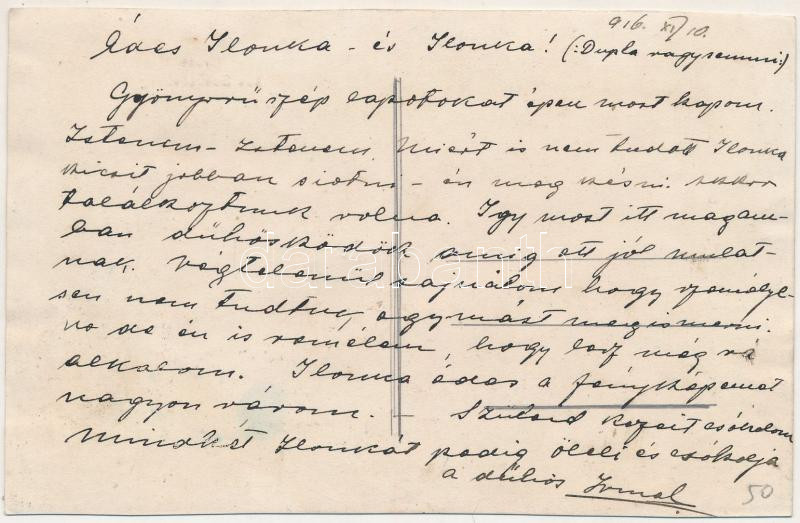 916. XI/10.
Édes Ilonka - és Ilonka! (:Dupla vagy semmi:)
Gyönyörű szép lapotokat épen most kapom.
Istenem - Istenem. Miért is nem tudott Ilonka
kicsit jobban sietni - én meg késni. Akkor
találkoztunk volna. Igy most itt magam-
ban dühösködök amig ott jól mulat-
nak. Végtelenül sajnálom hogy személye-
sen nem tudtuk egymást megismerni.
No de én is remélem, hogy lesz még rá
alkalom. Ilonka édes a fényképemet
nagyon várom. - Szüleid kezeit csókolom
mindkét Ilonkát pedig öleli és csókolja
a dühös
50
darabanth